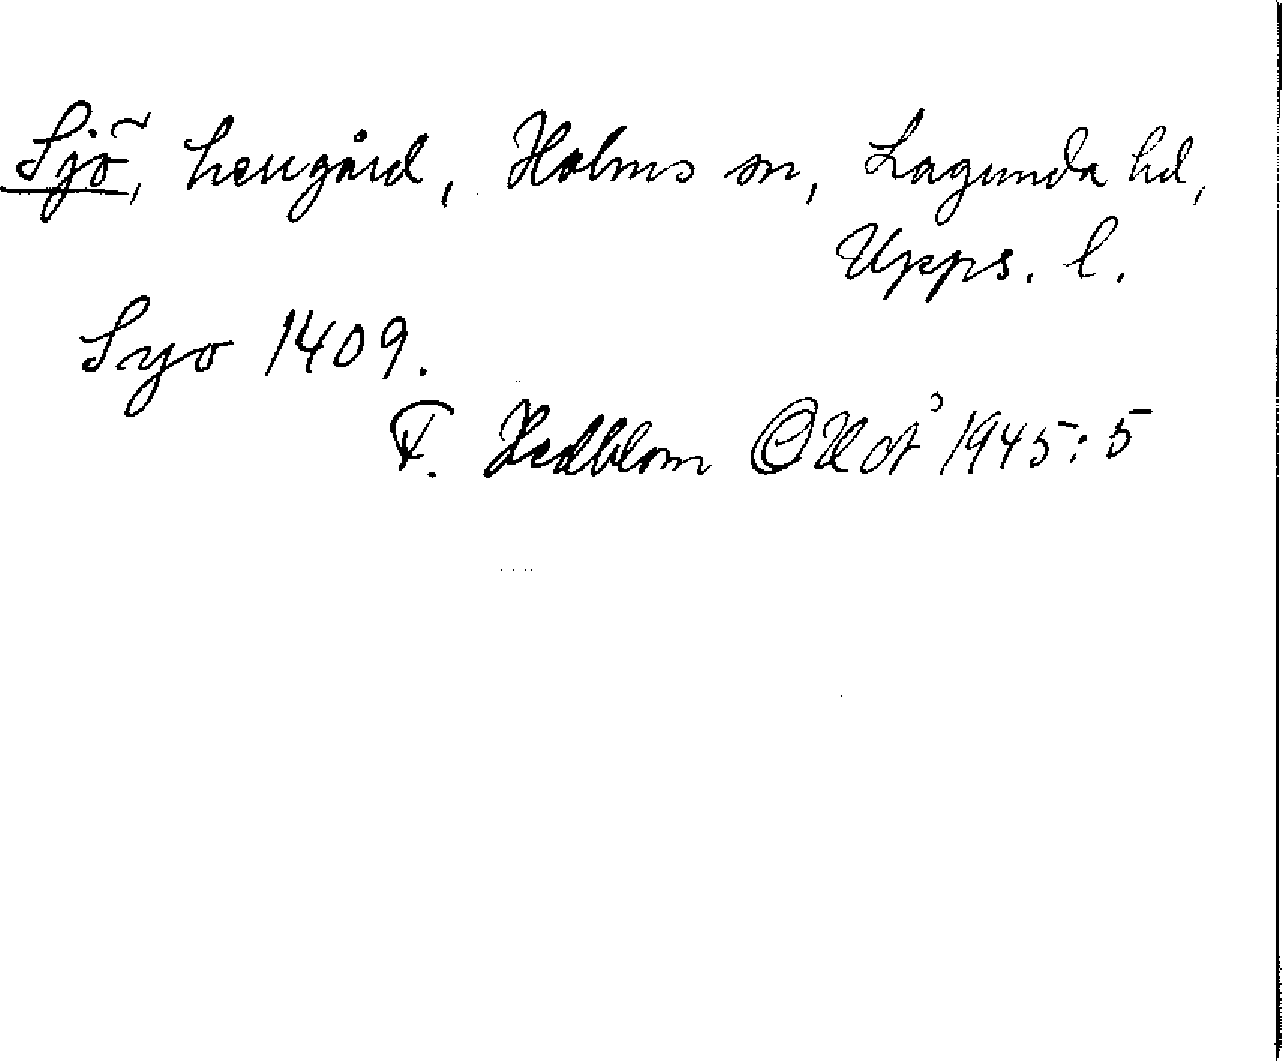 Sjö, herrgård, Holms sn, Lagunda hd,
Upps. l.
Syo 1409.
F. Hedblom OUoÅ 1945:5